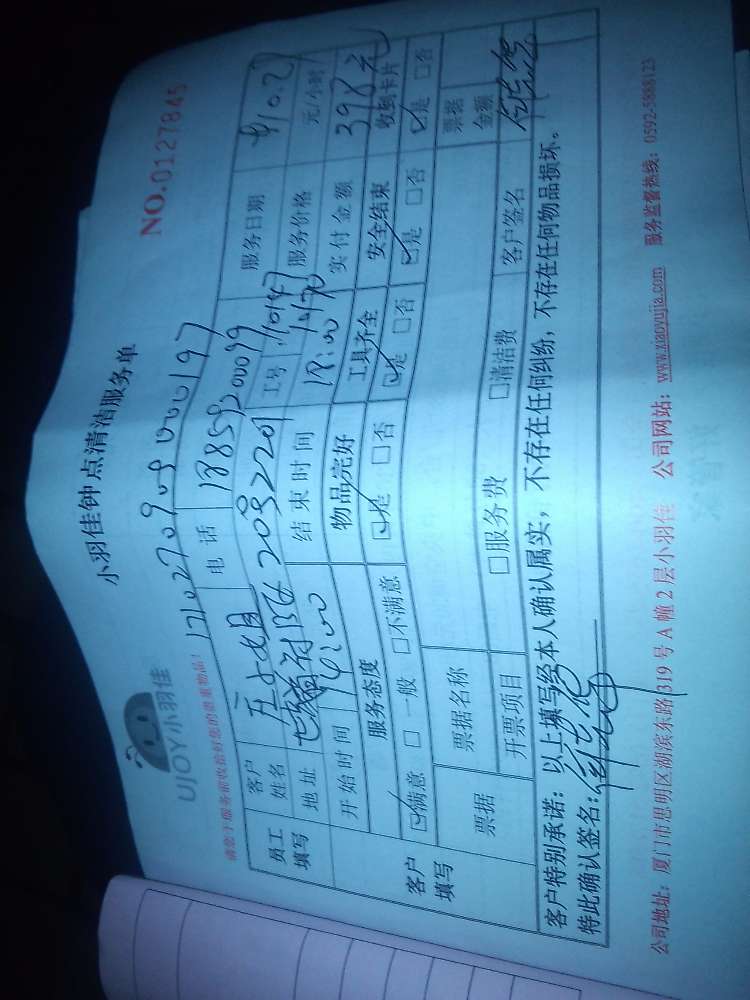 UJOY小羽佳
小羽佳钟点清洁服务单
NO.0127845
请您于服务前收拾好您的贵重物品!
员工填写
客户姓名 电话 服务日期
地址 工号 服务价格 元/小时
开始时间 14:00 结束时间 18:00 实付金额 398元
客户填写
服务态度 物品完好 工具齐全 安全结束 收到卡片
☑满意 □一般 □不满意 ☑是 □否 ☑是 □否 ☑是 □否 ☑是 □否
票据 票据名称 票据金额
开票项目 □服务费 □清洁费 客户签名
客户特别承诺:以上填写经本人确认属实,不存在任何纠纷,不存在任何物品损坏。
特此确认签名:
公司地址:厦门市思明区湖滨东路319号A幢2层小羽佳 公司网站:www.xiaoyujia.com 服务监督热线:0592-5888123